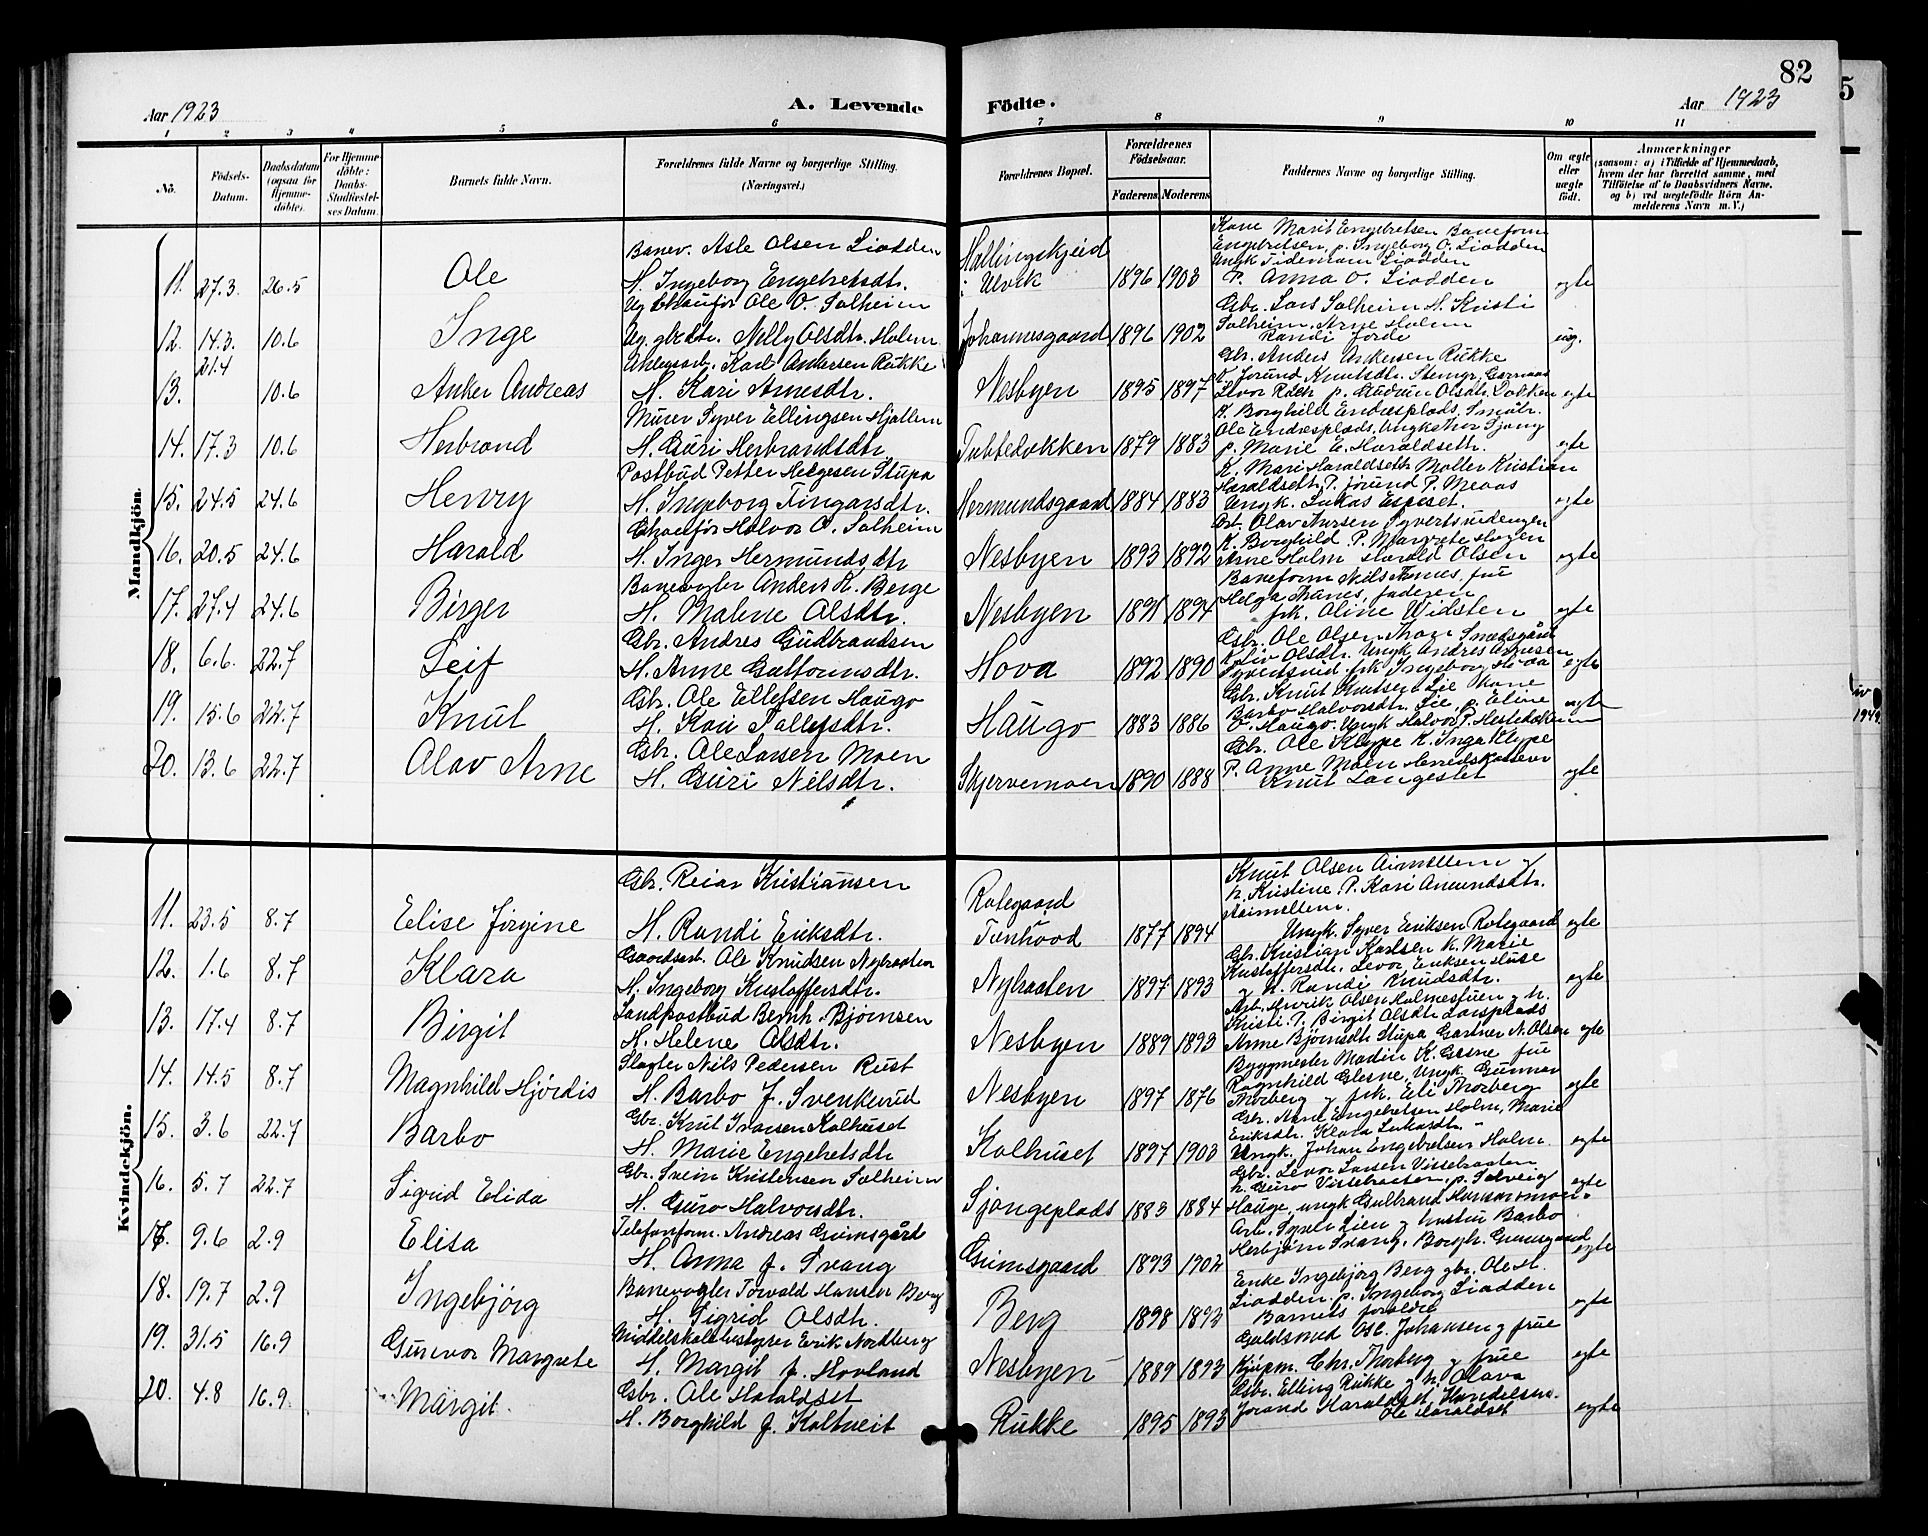 82
5
Aar 1923
A. Levende
Födte.
Aar 1923
1 2 3 4 5 6 7 8 9 10 11
No.
Födsels-Datum.
Daabsdatum (ogsaa for Hjemme-döbte).
For Hjemme-döbte: Daabs-Stadfæstel-ses Datum.
Barnets fulde Navn.
Forældrenes fulde Navne og borgerlige Stilling.
(Næringsvei.)
Forældrenes Bopæl.
Forældrenes Födselsaar.
Faderens Moderens
Faddernes Navne og borgerlige Stilling.
Om ægte eller uægte födt.
Anmærkninger
(saasom: a) i Tilfælde af Hjemmedaab, hvem der har forrettet samme, med Tilföielse af to Daabsvidners Navne. og b) ved uægtefödte Börn An-melderens Navn m. V.)
Mandkjön.
11. 27.3. 26.5 Ole
Banev. Asle Olsen Liodden
H. Ingeborg Engebretsdtr.
Hallingskjeid
i Ulvik
1896 1903
Kone Marit Engebretsen Baneform
Engebretsen, p. Ingeborg O. Liodden
Ungk Tidemann Liodden
P. Anna O. Liodden
egte
12. 14.3. 10.6 Inge
Ug Chaufør Ole O. Solheim
Ug. gbrdtr. Nelly Olsdtr. Holm
Johannesgaard 1896 1902
Gbr. Lars Solheim H. Kristi
Solheim. Arne Holm
Randi Jorde
ug.
13. 21.4 10.6 Anker Andreas
Karl Andersen Rukke
H. Kari Arnesdtr.
Nesbyen 1895 1897
Gbr. Anders Ankersen Rukke
egte
14. 17.3 10.6 Herbrand
Murer Syver Ellingsen Hjallem
H. Guri Herbrandsdtr.
Tubbedokken 1879 1883
K. Borghild Endresplads, Smålr.
Ole Endresplads, Ungk Thor Sjong
p. Marie E. Haraldseth.
egte
15. 24.5 24.6 Henry
Postbud Petter Helgesen Stupa
H. Ingeborg Fingarsdtr.
Hermundsgaard 1884 1883
K. Mari Haraldseth Møller Kristian
Haraldseth, P. Jørund P. Meaas
Ungk. Lukas Espeset.
egte
16. 20.5 24.6 Harald
Chaufør Halvor O. Solheim
H. Inger Hermundsdtr
Nesbyen 1893 1892
K. Borghild P. Margrete Hagen
Arne Holm Harald Olsen
egte
17. 27.4 24.6 Birger
Banevogter Anders K. Berge
H. Malene Olsdtr.
Nesbyen 1891 1894
Baneform Nils Thanes, fru
Helga Thanes, faderen
frk. Oline Widsten
egte
18. 6.6. 22.7 Leif
Gbr. Andres Gudbrandsen
H. Anne Guttormsdtr.
Hova 1892 1890
Gbr. Ole Olsen Thon Smedsgård
K. Liv Olsdtr. Ungk Andres Asmusen
Syvertsrud, frk Ingeborg Hovaa
egte
19. 15.6 22.7 Knut
Gbr. Ole Ellefsen Haugo
H. Kari Tollefsdtr.
Haugo 1883 1886
Gbr. Knut Knutsen Lie Kone
Barbo Halvorsdtr. Lie, p. Eline
O. Haugo. Ungk Halvor P. Hestedokken
egte
20. 13.6 22.7 Olav Arne
Gbr. Ole Larsen Moen
H. Guri Nilsdtr.
Skjervemoen 1890 1888
Gbr. Ole Klype K. Inga Klype
P. Anne Moen Herredskasserer
Knut Langeset
egte
Kvindekjön.
11. 23.5 8.7 Elise Jørgine
Gbr. Reiar Kristiansen
H. Randi Eriksdtr.
Rotegaard
Tunhovd
1877 1894
Knut Olsen Aimellem og
h. Kristine. P. Kari Amundsdtr.
Aaimellem.
Ungk. Syver Eriksen Rotegaard
egte
12. 1.6 8.7 Klara
Gaardsarb. Ole Knudsen Nybraaten
H. Ingeborg Kristoffersdtr.
Nybraaten 1897 1893
Gbr. Kristian Karlsen k. Marie
Kristoffersdtr. Levor Eriksen Huse
og h. Randi Knudsdtr.
egte
13. 17.4 8.7 Birgit
Landpostbud Bernh. Bjørnsen
H. Helene Olsdtr.
Nesbyen 1889 1893
Arb. Henrik Olsen Holmestuen og h.
Kristi. P. Birgit Olsdtr. Larsplads
Arne Bjørnsdtr Stupa Gartner N. Olsen
egte
14. 14.5 8.7 Magnhild Hjördis
Slagter Nils Pedersen Rust
H. Barbo f. Svenkerud
Nesbyen 1897 1876
Byggmester Martin K. Glesne fru
Ragnhild Glesne, Ungk. Gunnar
Thorberg og frk. Eli Thorberg
egte
15. 3.6 22.7 Barbo
Gbr. Knut Ivarsen Kolhuset
H. Marie Engebretsdtr
Kolhuset 1897 1903
Gbr. Arne Engebretsen Holm, Marie
Eriksdtr. Klara Lukasdtr.
Ungk. Johan Engebretsen Holm
egte
16. 5.7 22.7 Sigrid Elida
Gbr. Svein Kristensen Solheim
H. Guro Halvorsdtr.
Sjongeplads 1883 1884
Gbr. Levor Larsen Vissebraaten
h. Guro Vissebraaten, p. Solveig
Hauge, ungk Gulbrand
egte
17. 9.6 2.9 Elisa
Telefonform. Andreas Grimsgård
H. Anna f. Svang
Grimsgaard 1893 1902
Arb. Syver Lien og hustru Barbo
Herbjørn Svang, Borgh. Grimsgaard
egte
18. 19.7 2.9 Ingebjörg
Banevogter Torvald Hansen Berg
H. Sigrid Olsdtr.
Berg 1898 1893
Enke Ingebjörg Berg gbr. Ole H.
Liodden. p. Ingeborg Liodden
Barnets foreldre
egte
19. 31.5 16.9 Gunvor Margrete
Middelskolebestyrer Erik Nordberg
H. Margit f. Hovland
Nesbyen 1889 1893
Guldsmed Osc. Johansen og frue
Kjøpm. Chr. Thorberg og frue
egte
20. 4.8 16.9. Margit.
Gbr. Ole Haraldset
H. Borghild f. Koltveit
Rukke 1895 1893
Gbr. Elling Rukke og h. Olava
Jorand Haraldset, Handelsm.
Ole Haraldset
egte